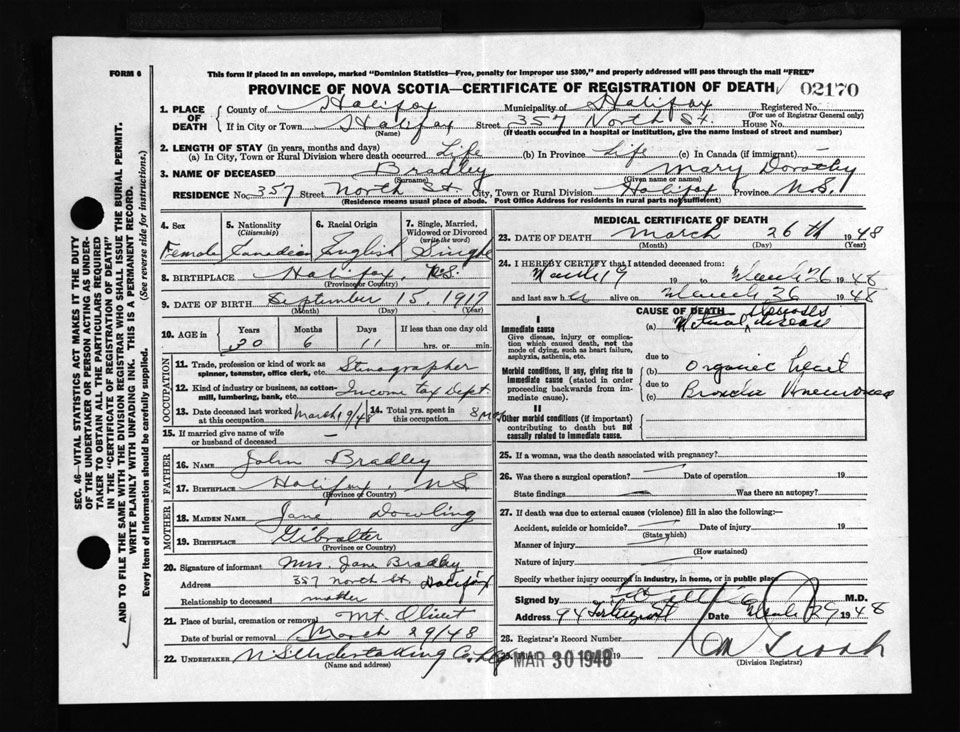 FORM 6
This form if placed in an envelope, marked "Dominion Statistics—Free, penalty for improper use $300," and properly addressed will pass through the mail "FREE"
PROVINCE OF NOVA SCOTIA—CERTIFICATE OF REGISTRATION OF DEATH 02170
SEC. 46—VITAL STATISTICS ACT MAKES IT THE DUTY
OF THE UNDERTAKER OR PERSON ACTING AS UNDER-
TAKER TO OBTAIN ALL THE PARTICULARS REQUIRED
IN THE "CERTIFICATE OF REGISTRATION OF DEATH"
AND TO FILE THE SAME WITH THE DIVISION REGISTRAR WHO SHALL ISSUE THE BURIAL PERMIT.
WRITE PLAINLY WITH UNFADING INK. THIS IS A PERMANENT RECORD.
Every item of Information should be carefully supplied. (See reverse side for instructions.)
1. PLACE OF DEATH
County of Halifax Municipality of Halifax Registered No.
(For use of Registrar General only)
If in City or Town Halifax Street 357 North St. House No.
(Name) (If death occurred in a hospital or institution, give the name instead of street and number)
2. LENGTH OF STAY (in years, months and days)
(a) In City, Town or Rural Division where death occurred Life (b) In Province Life (c) In Canada (if immigrant) —
3. NAME OF DECEASED Bradley Mary Dorothy
(Surname) (Given name or names)
RESIDENCE No. 357 Street North St City, Town or Rural Division Halifax Province N.S.
(Residence means usual place of abode. Post Office Address for residents in rural parts not sufficient)
4. Sex 5. Nationality (Citizenship) 6. Racial Origin 7. Single, Married, Widowed or Divorced (write the word)
Female Canadian English Single
8. BIRTHPLACE Halifax, N.S.
(Province or Country)
9. DATE OF BIRTH September 15, 1917
(Month) (Day) (Year)
10. AGE in Years Months Days If less than one day old
30 6 11 hrs. or min.
OCCUPATION
11. Trade, profession or kind of work as spinner, teamster, office clerk, etc. Stenographer
12. Kind of industry or business, as cotton-mill, lumbering, bank, etc. Income tax Dept.
13. Date deceased last worked at this occupation March 19/48 14. Total yrs. spent in this occupation 8
15. If married give name of wife or husband of deceased —
FATHER
16. NAME John Bradley
17. BIRTHPLACE Halifax, N.S.
(Province or Country)
MOTHER
18. MAIDEN NAME Jane Dowling
19. BIRTHPLACE Gibralter
(Province or Country)
20. Signature of informant Mrs. Jane Bradley
Address 357 North St. Halifax
Relationship to deceased mother
21. Place of burial, cremation or removal Mt. Olivet
Date of burial or removal March 29/48
22. UNDERTAKER N.S. Undertaking Co. Ltd
(Name and address)
MEDICAL CERTIFICATE OF DEATH
23. DATE OF DEATH March 26th 1948
(Month) (Day) (Year)
24. I HEREBY CERTIFY that I attended deceased from:
March 19 19 to March 26 1948
and last saw her alive on March 26 1948
CAUSE OF DEATH
I
Immediate cause
Give disease, injury or complication which caused death, not the mode of dying, such as heart failure, asphyxia, asthenia, etc.
(a) Mitral Stenosis disease
due to
Morbid conditions, if any, giving rise to immediate cause (stated in order proceeding backwards from immediate).
(b) Organic heart
due to
(c) Broncho Pneumonia
II
Other morbid conditions (if important) contributing to death but not causally related to immediate cause.
25. If a woman, was the death associated with pregnancy?
26. Was there a surgical operation? — Date of operation 19
State findings — Was there an autopsy?
27. If death was due to external causes (violence) fill in also the following:—
Accident, suicide or homicide? Date of injury 19
(State which)
Manner of injury
(How sustained)
Nature of injury
Specify whether injury occurred in industry, in home, or in public place
Signed by M.D.
Address 94 Date March 29 1948
28. Registrar's Record Number
MAR 30 1948
(Division Registrar)